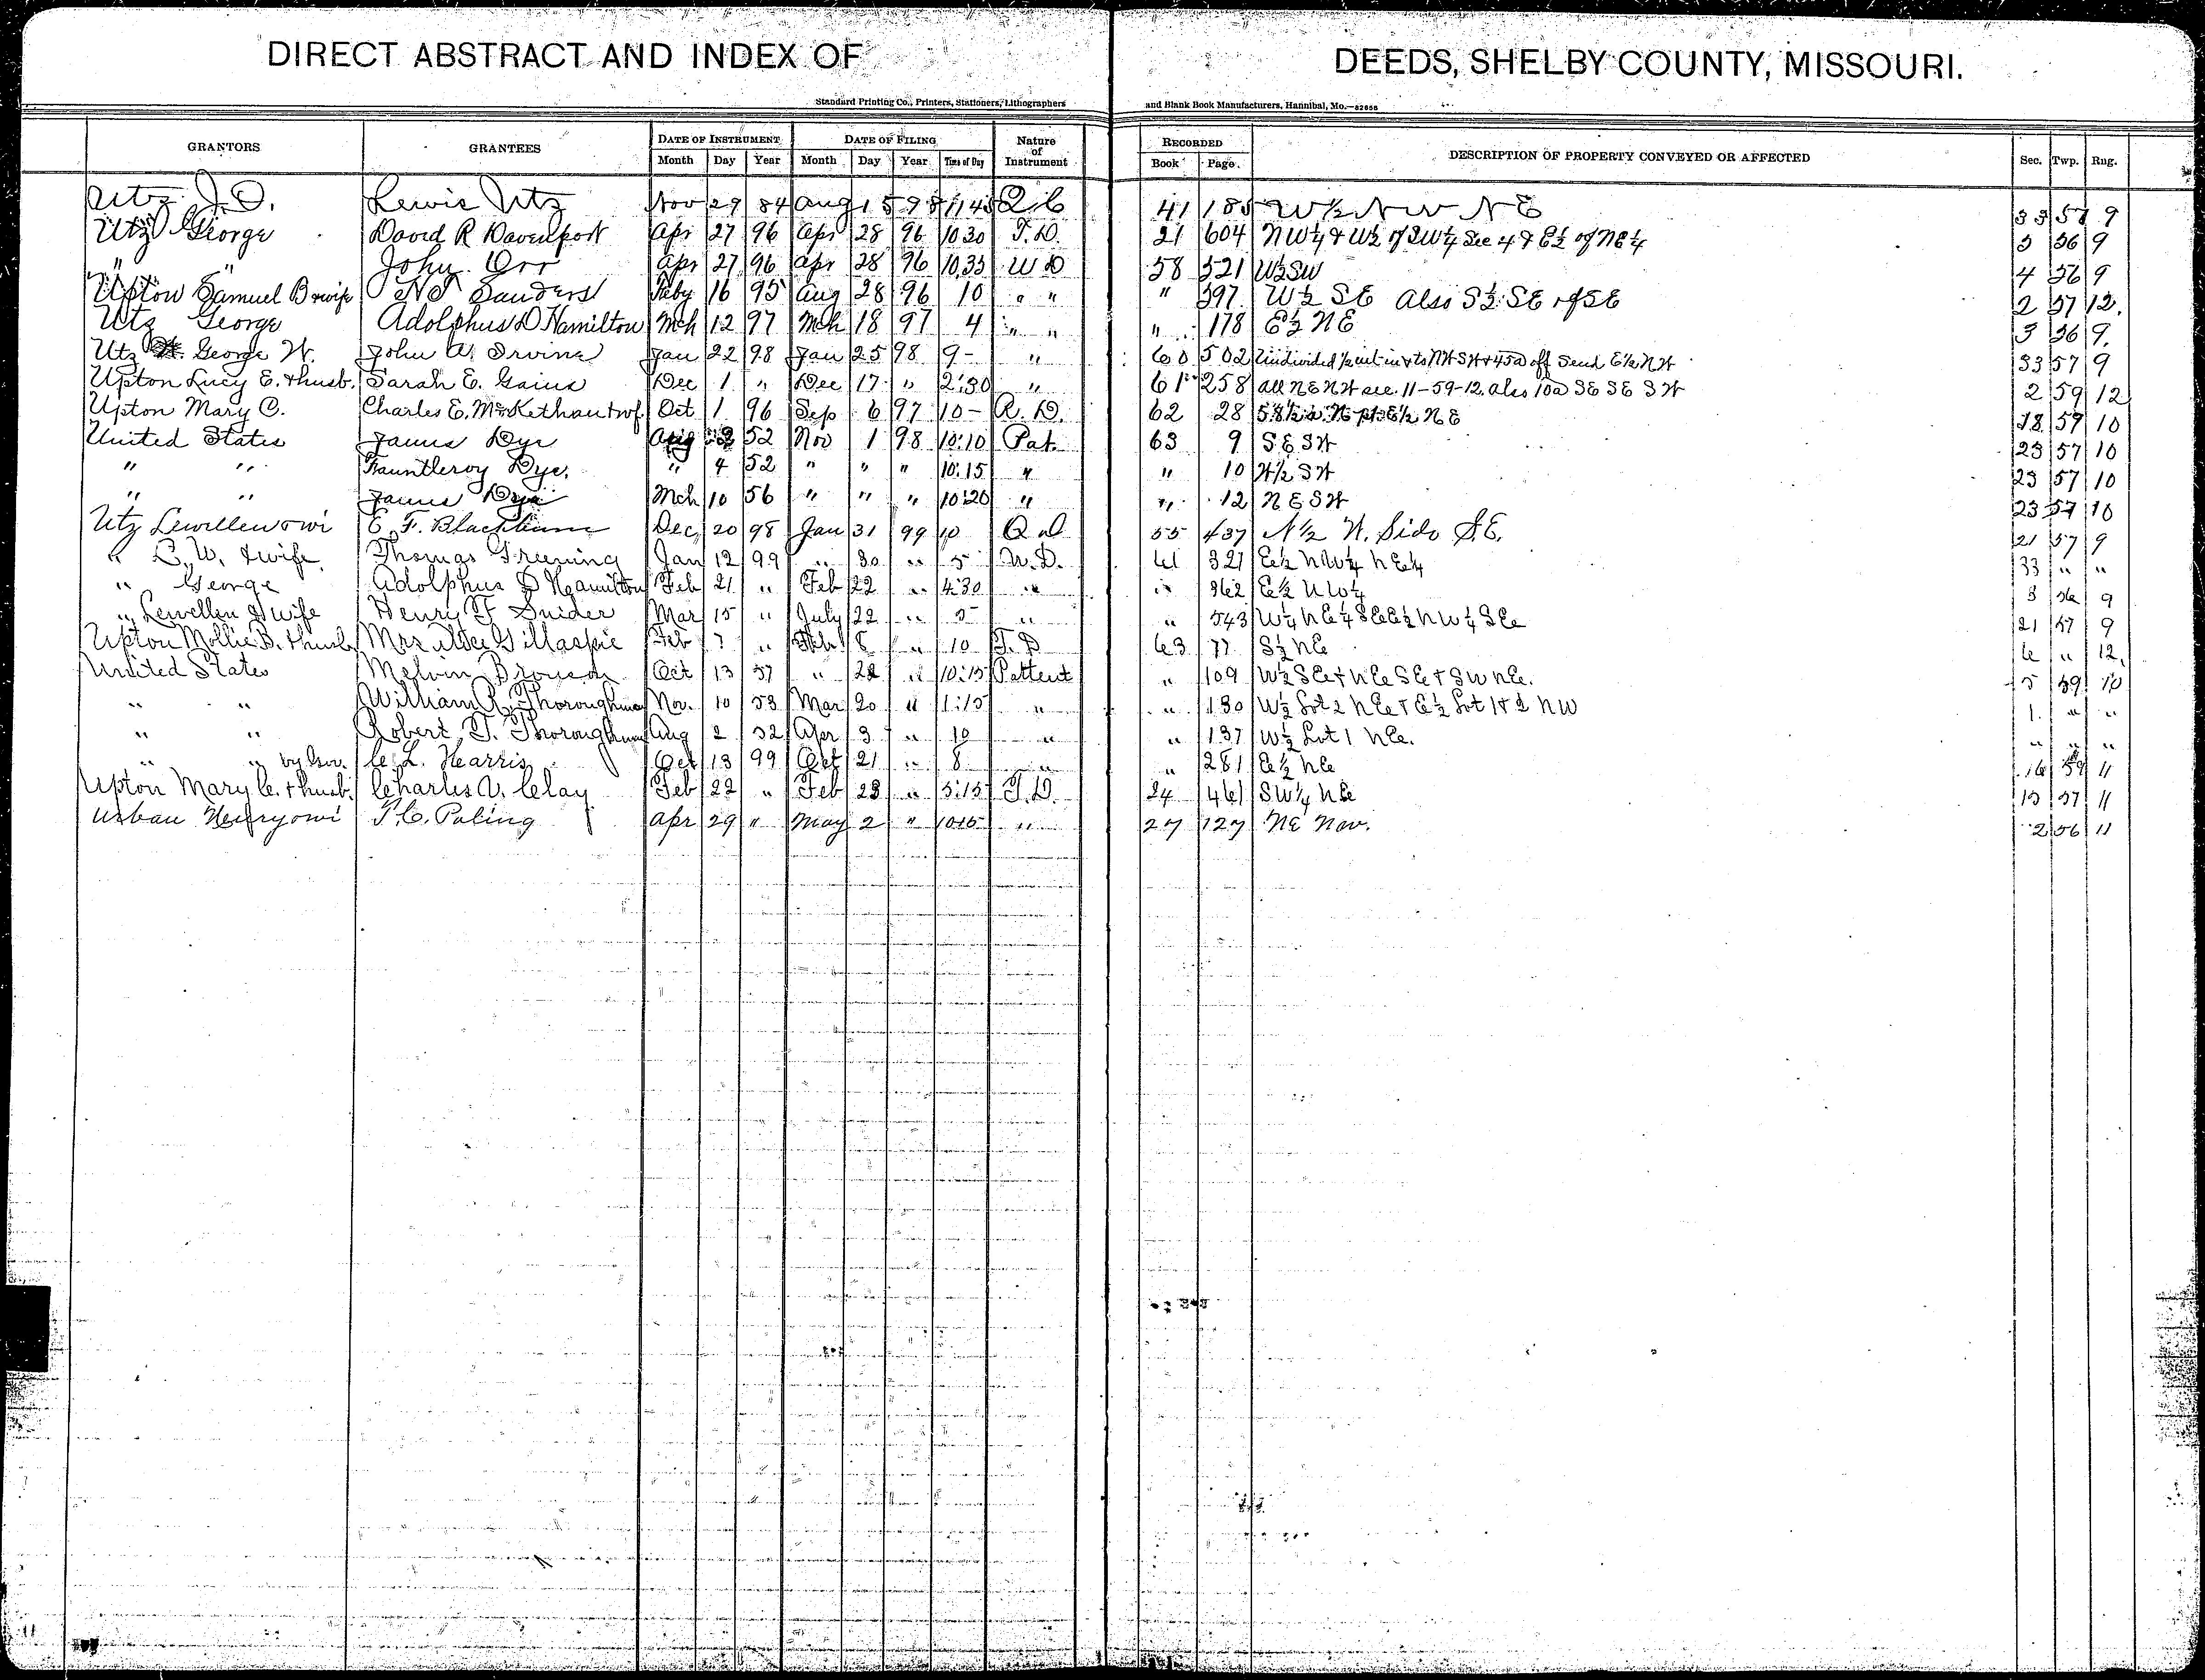 DIRECT ABSTRACT AND INDEX OF DEEDS, SHELBY COUNTY, MISSOURI.
Standard Printing Co., Printers, Stationers, Lithographers and Blank Book Manufacturers, Hannibal, Mo.—82658
GRANTORS GRANTEES DATE OF INSTRUMENT DATE OF FILING Nature of Instrument RECORDED DESCRIPTION OF PROPERTY CONVEYED OR AFFECTED Sec. Twp. Rng.
Month Day Year Month Day Year Time of Day Book Page
Utz J.D. Lewis Utz Nov 29 84 Aug 15 98 1145 Q C 41 185 W½ NW NE 33 57 9
Utz George David R Davenport Apr 27 96 Apr 28 96 1030 T.D. 21 604 NW¼ & W½ of SW¼ Sec 4 & E½ of NE¼ 5 56 9
" " John Orr Apr 27 96 Apr 28 96 10,35 W D 58 521 W½ SW 4 56 9
Upton Samuel B wife Sanders Feby 16 95 Aug 28 96 10 " " " 597 W½ SE Also S½ SE of SE 2 57 12.
Utz George Adolphus D Hamilton Mch 12 97 Mch 18 97 4 " " " 178 E½ NE 5 56 9.
Utz George W. John A. Irvine Jan 22 98 Jan 25 98 9- " 60 502 Undivided ½ int in & to NW SW & 45a off S end E½ NW 33 57 9
Upton Lucy E. & husb. Sarah E. Gaius Dec 1 " Dec 17 " 2:30 " 61 258 all NE NW sec. 11-59-12. also 10a SE SE SW 2 59 12
Upton Mary C. Charles E. McKethan & wf. Oct 1 96 Sep 6 97 10- R. D. 62 28 58½a N pt E½ NE 18 57 10
United States James Dye Aug 52 Nov 1 98 10:10 Pat. 63 9 SE SW 23 57 10
" " Fauntleroy Dye. " 4 52 " " " 10:15 " " 10 W½ SW 23 57 10
" " James Dye Mch 10 56 " " " 10:20 " " 12 NE SW 23 57 10
Utz Lewellen & wi E. F. Blackburn Dec 20 98 Jan 31 99 10 Q D 55 437 N½ W. Side S.E. 21 57 9
" L. W. & wife Thomas Greening Jan 12 99 " 30 " 5 W. D. 61 321 E½ NW¼ NE¼ 33 " "
" George Adolphus D Hamilton Feb 21 " Feb 22 " 4:30 " " 362 E½ NW¼ 3 56 9
" Lewellen & wife Henry F Snider Mar 15 " July 22 " 5 " " 543 W¼ NE¼ SE E½ NW¼ SE 21 57 9
Upton Mollie B. & husb Mrs Gillaspie Feb 7 " Feb 8 " 10 T. D 63 77 S½ NE 6 " 12.
United States Melvin Bronson Oct 13 57 " 28 " 10:15 Pattent " 109 W½ SE & NE SE & SW NE. 5 59 10
" " William R. Thoroughman Nov. 10 53 Mar 20 " 1:15 " " 130 W½ Lot 2 NE & E½ Lot 1 & 2 NW 1. " "
" " Robert T. Thoroughman Aug 2 52 Apr 3 " 10 " " 137 W½ Lot 1 NE. " " "
" " by Gov. C. L. Harris Oct 13 99 Oct 21 " 8 " " 281 E½ NE 16 59 11
Upton Mary C. & husb. Charles V. Clay Feb 22 " Feb 23 " 3:15 T. D. 24 461 SW¼ NE 15 57 11
Urban Henry & wi T. C. Poling Apr 29 " May 2 " 1015 " 27 127 NE Nw. 2 56 11